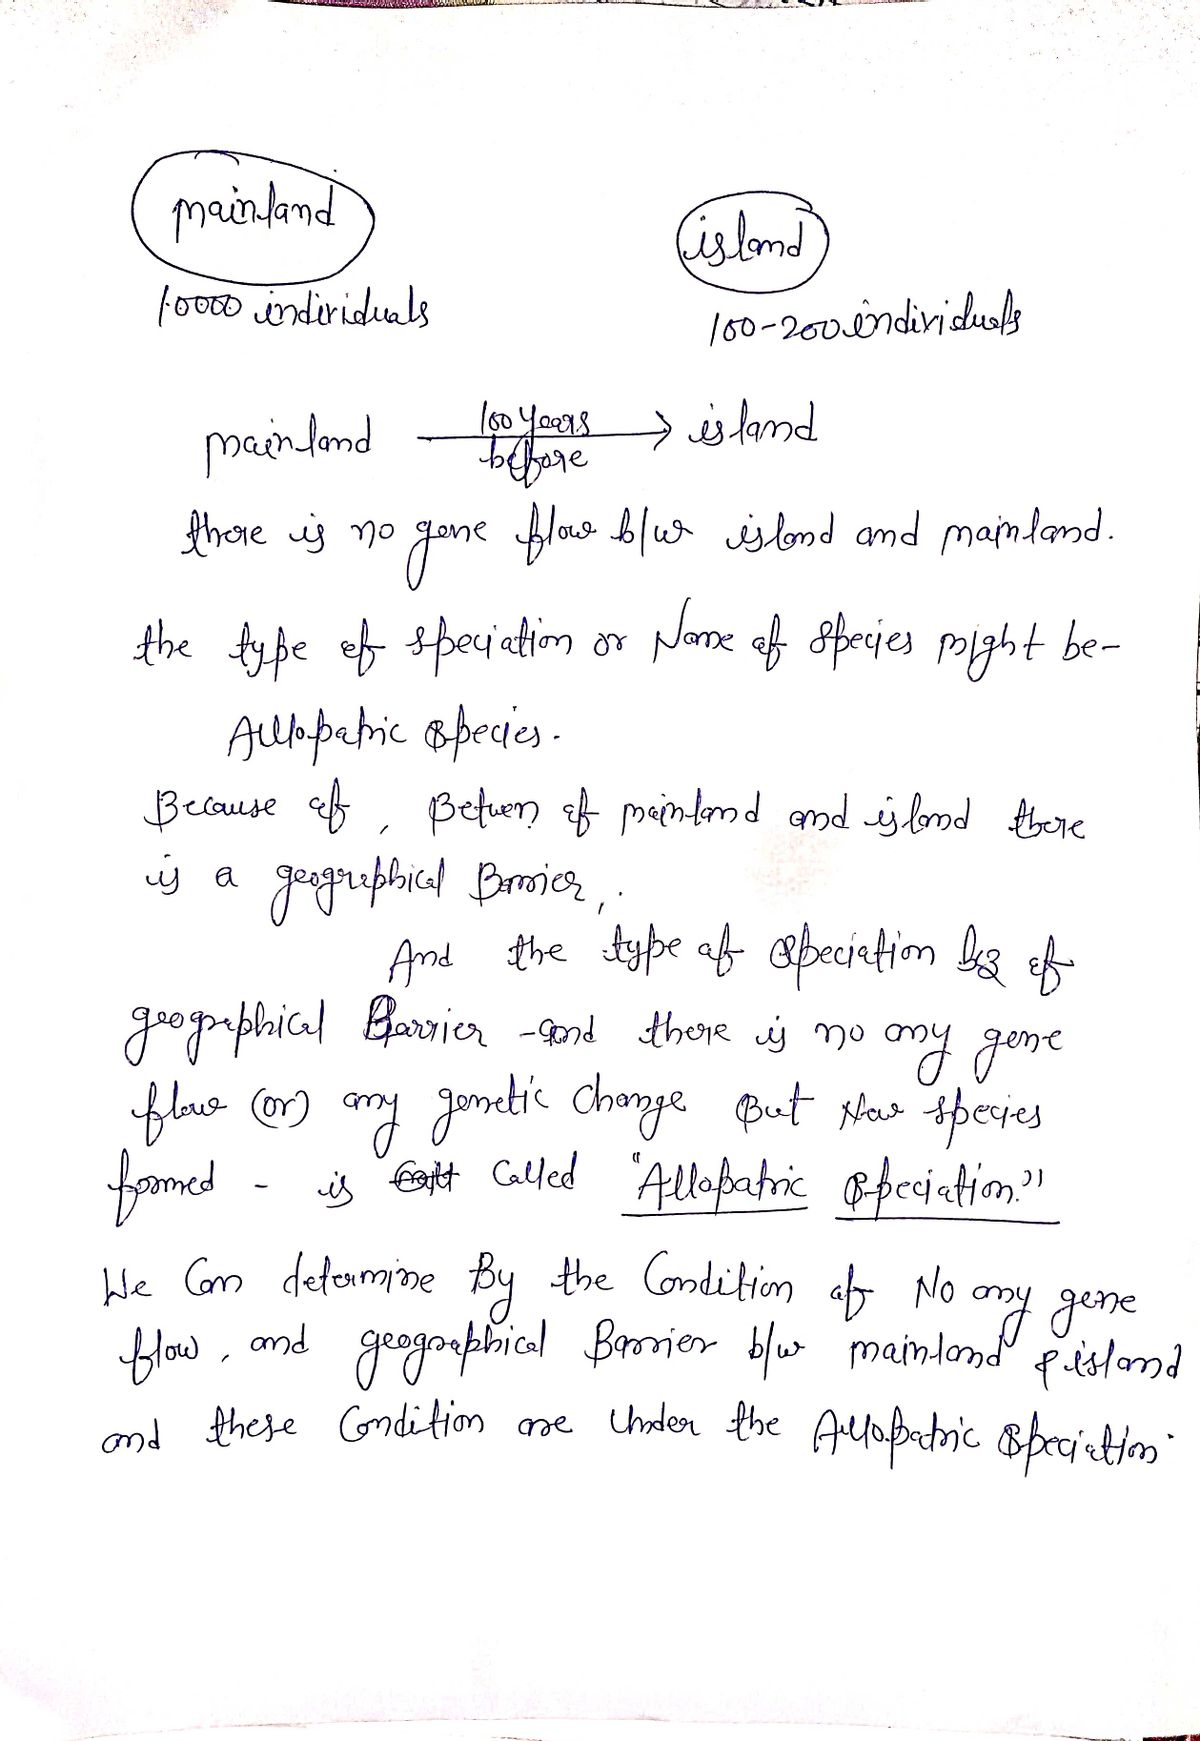 mainland
island
10000 individuals
100-200 individuals
mainland 100 years before → island
there is no gene flow b/w island and mainland.
the type of speciation or Name of species might be-
Allopatric species.
Because of, Betwen of mainland and island there
is a geographical Barrier,.
And the type of speciation bcz of
geographical Barrier - and there is no any gene
flow (or) any genetic change But New species
formed - is called "Allopatric speciation."
We Can determine By the Condition of No any gene
flow, and geographical Barrier b/w mainland & island
and these Condition are Under the Allopatric speciation.